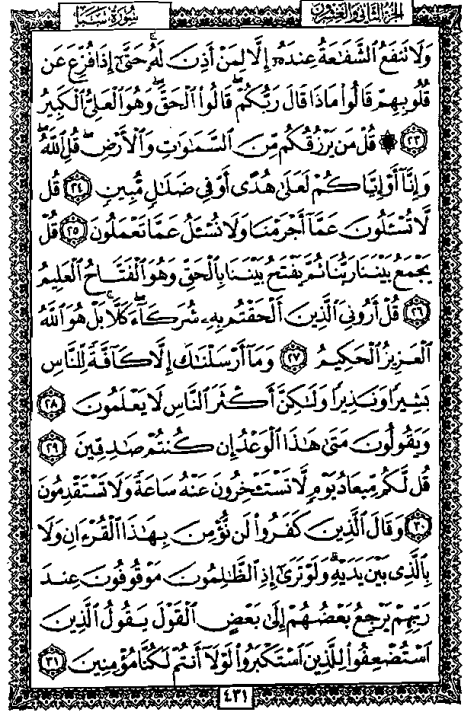 الجزء الثاني والعشرون
سورة سبأ
وَلَا تَنفَعُ ٱلشَّفَٰعَةُ عِندَهُۥٓ إِلَّا لِمَنْ أَذِنَ لَهُۥ حَتَّىٰٓ إِذَا فُزِّعَ عَن
قُلُوبِهِمْ قَالُوا۟ مَاذَا قَالَ رَبُّكُمْ ۖ قَالُوا۟ ٱلْحَقَّ ۖ وَهُوَ ٱلْعَلِىُّ ٱلْكَبِيرُ
٢٣ ۞ قُلْ مَن يَرْزُقُكُم مِّنَ ٱلسَّمَٰوَٰتِ وَٱلْأَرْضِ ۖ قُلِ ٱللَّهُ ۖ
وَإِنَّآ أَوْ إِيَّاكُمْ لَعَلَىٰ هُدًى أَوْ فِى ضَلَٰلٍ مُّبِينٍ ٢٤ قُل
لَّا تُسْـَٔلُونَ عَمَّآ أَجْرَمْنَا وَلَا نُسْـَٔلُ عَمَّا تَعْمَلُونَ ٢٥ قُلْ
يَجْمَعُ بَيْنَنَا رَبُّنَا ثُمَّ يَفْتَحُ بَيْنَنَا بِٱلْحَقِّ وَهُوَ ٱلْفَتَّاحُ ٱلْعَلِيمُ
٢٦ قُلْ أَرُونِىَ ٱلَّذِينَ أَلْحَقْتُم بِهِۦ شُرَكَآءَ ۖ كَلَّا ۚ بَلْ هُوَ ٱللَّهُ
ٱلْعَزِيزُ ٱلْحَكِيمُ ٢٧ وَمَآ أَرْسَلْنَٰكَ إِلَّا كَآفَّةً لِّلنَّاسِ
بَشِيرًا وَنَذِيرًا وَلَٰكِنَّ أَكْثَرَ ٱلنَّاسِ لَا يَعْلَمُونَ ٢٨
وَيَقُولُونَ مَتَىٰ هَٰذَا ٱلْوَعْدُ إِن كُنتُمْ صَٰدِقِينَ ٢٩
قُل لَّكُم مِّيعَادُ يَوْمٍ لَّا تَسْتَـْٔخِرُونَ عَنْهُ سَاعَةً وَلَا تَسْتَقْدِمُونَ
٣٠ وَقَالَ ٱلَّذِينَ كَفَرُوا۟ لَن نُّؤْمِنَ بِهَٰذَا ٱلْقُرْءَانِ وَلَا
بِٱلَّذِى بَيْنَ يَدَيْهِ ۗ وَلَوْ تَرَىٰٓ إِذِ ٱلظَّٰلِمُونَ مَوْقُوفُونَ عِندَ
رَبِّهِمْ يَرْجِعُ بَعْضُهُمْ إِلَىٰ بَعْضٍ ٱلْقَوْلَ يَقُولُ ٱلَّذِينَ
ٱسْتُضْعِفُوا۟ لِلَّذِينَ ٱسْتَكْبَرُوا۟ لَوْلَآ أَنتُمْ لَكُنَّا مُؤْمِنِينَ ٣١
٤٣١